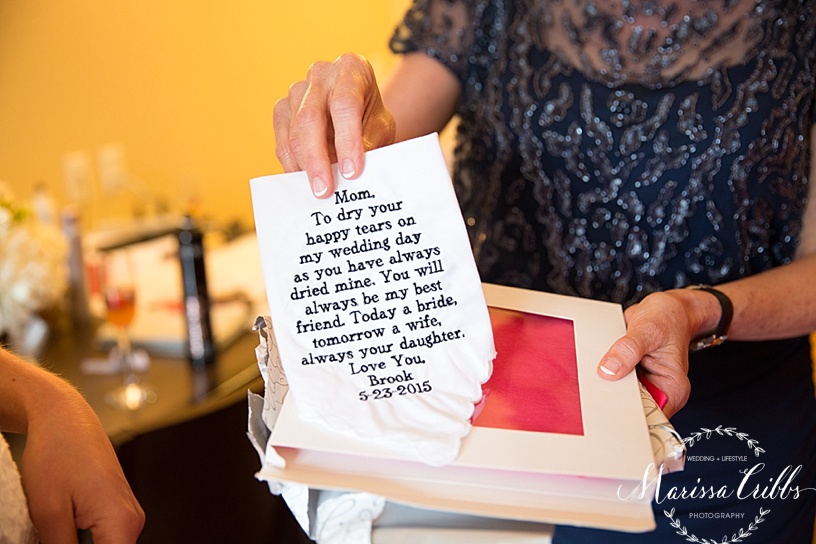 Mom,
To dry your
happy tears on
my wedding day
as you have always
dried mine. You will
always be my best
friend. Today a bride,
tomorrow a wife,
always your daughter.
Love You,
Brook
5-23-2015
WEDDING + LIFESTYLE
Marissa Cribbs
PHOTOGRAPHY